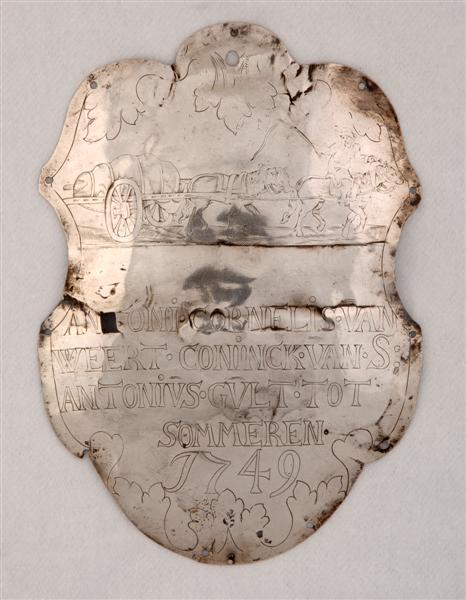 ANTONI·CORNELIS·VAN
WEERT·CONINCK·VAN·S:
ANTONIVS·GVLT·TOT
SOMMEREN
1749